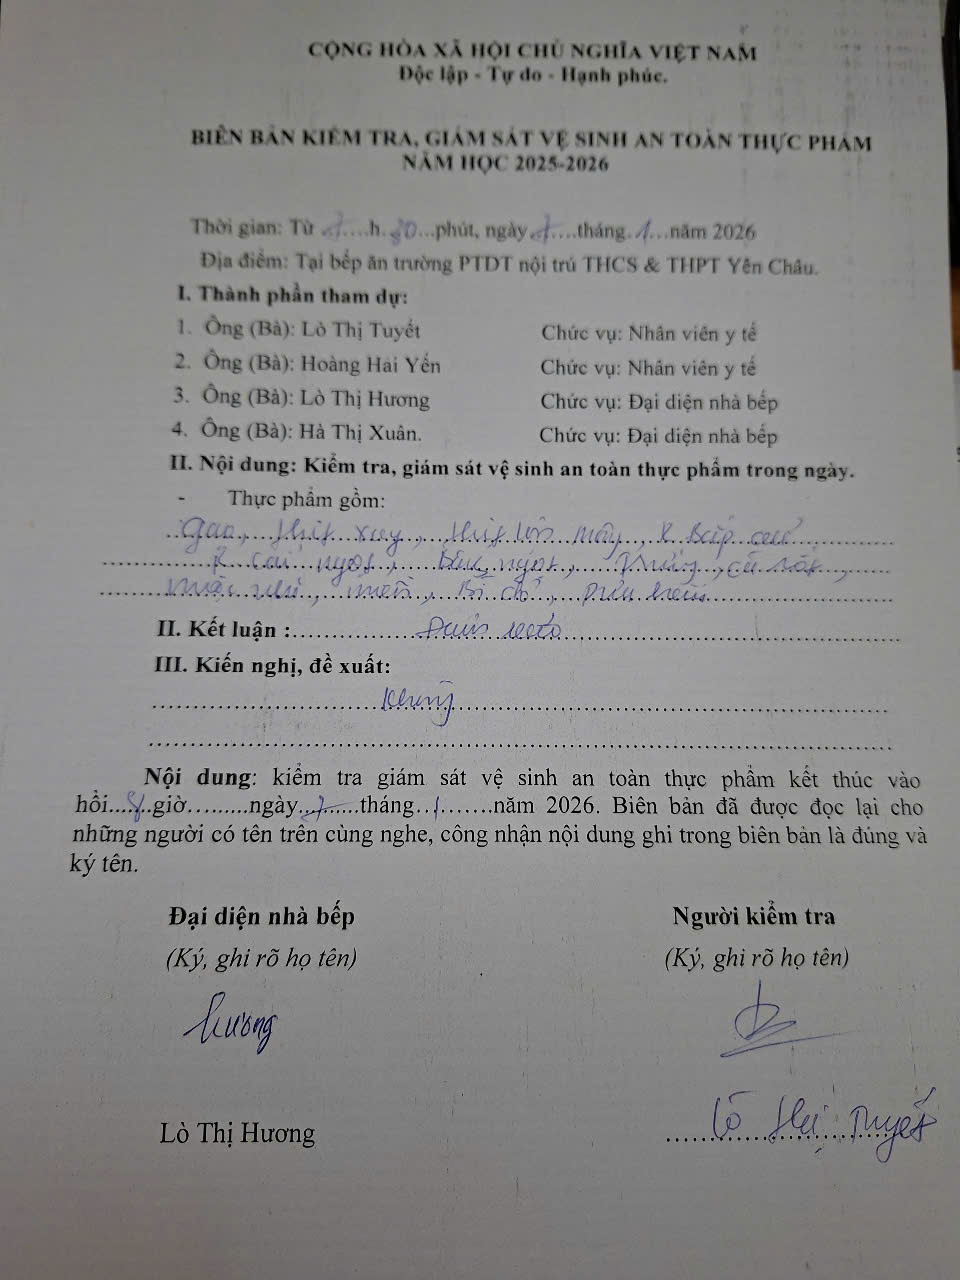 CỘNG HÒA XÃ HỘI CHỦ NGHĨA VIỆT NAM
Độc lập - Tự do - Hạnh phúc.
BIÊN BẢN KIỂM TRA, GIÁM SÁT VỆ SINH AN TOÀN THỰC PHẨM
NĂM HỌC 2025-2026
Thời gian: Từ 7....h.30...phút, ngày 7....tháng.1...năm 2026
Địa điểm: Tại bếp ăn trường PTDT nội trú THCS & THPT Yên Châu.
I. Thành phần tham dự:
1. Ông (Bà): Lò Thị Tuyết Chức vụ: Nhân viên y tế
2. Ông (Bà): Hoàng Hải Yến Chức vụ: Nhân viên y tế
3. Ông (Bà): Lò Thị Hương Chức vụ: Đại diện nhà bếp
4. Ông (Bà): Hà Thị Xuân. Chức vụ: Đại diện nhà bếp
II. Nội dung: Kiểm tra, giám sát vệ sinh an toàn thực phẩm trong ngày.
- Thực phẩm gồm:
Gạo, thịt xay, thịt lợn mông, R bắp cải
R cải ngọt, bầu, ngọt, trứng, củ sắn,
miến, Bí đỏ,
II. Kết luận :
III. Kiến nghị, đề xuất:
Không
Nội dung: kiểm tra giám sát vệ sinh an toàn thực phẩm kết thúc vào
hồi....8.giờ.........ngày 7......tháng.1.......năm 2026. Biên bản đã được đọc lại cho
những người có tên trên cùng nghe, công nhận nội dung ghi trong biên bản là đúng và
ký tên.
Đại diện nhà bếp Người kiểm tra
(Ký, ghi rõ họ tên) (Ký, ghi rõ họ tên)
Hương
Lò Thị Hương Lò Thị Tuyết